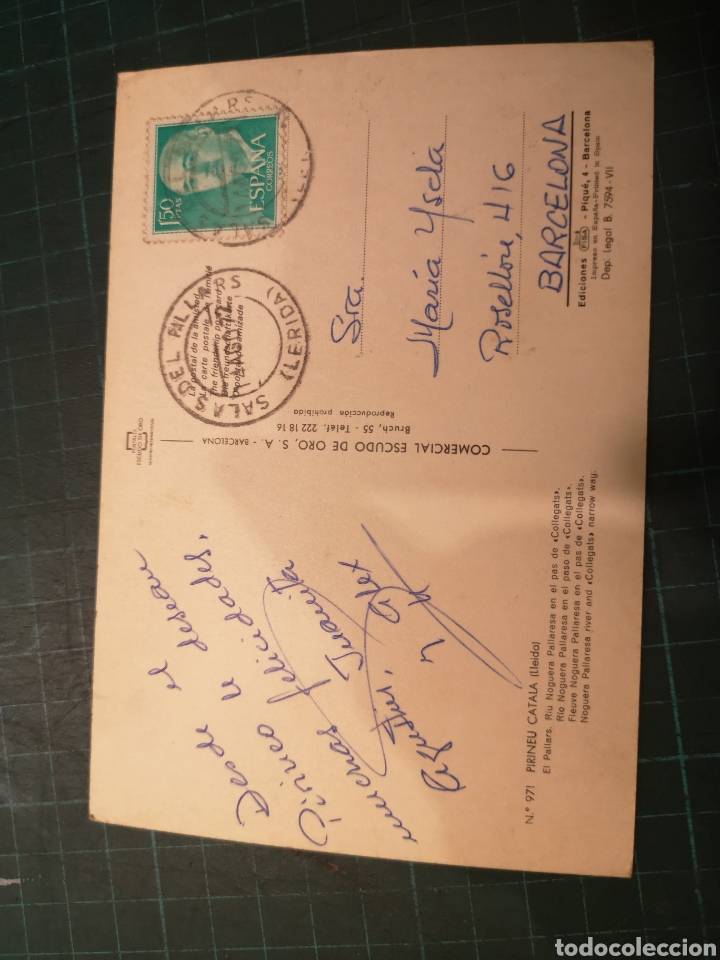 Desde el
Pirineo le desean
muchas felicidades,
Juanita
Agustin, Alex
y
N.º 971 PIRINEU CATALA (Lleida)
El Pallars. Riu Noguera Pallaresa en el pas de «Collegats».
Río Noguera Pallaresa en el paso de «Collegats».
Fleuve Noguera Pallaresa en el pas de «Collegats».
Noguera Pallaresa river and «Collegats» narrow way.
ESCUDO DE ORO
COMERCIAL ESCUDO DE ORO, S. A. - BARCELONA
Bruch, 55 - Teléf. 222 18 16
Reproducción prohibida
La postal de la amistad
La carte postale de l'amitié
The friendship postcard
Die freundschaftskarte
SALAS DEL PALLARS
(LERIDA)
1'50
PTAS
ESPAÑA
CORREOS
Sra.
María Ysela
Rosellón, 416
BARCELONA
Ediciones FISA - Piqué, 4 - Barcelona
Impreso en España-Printed in Spain
Dep. Legal B. 7594-VII
todocoleccion